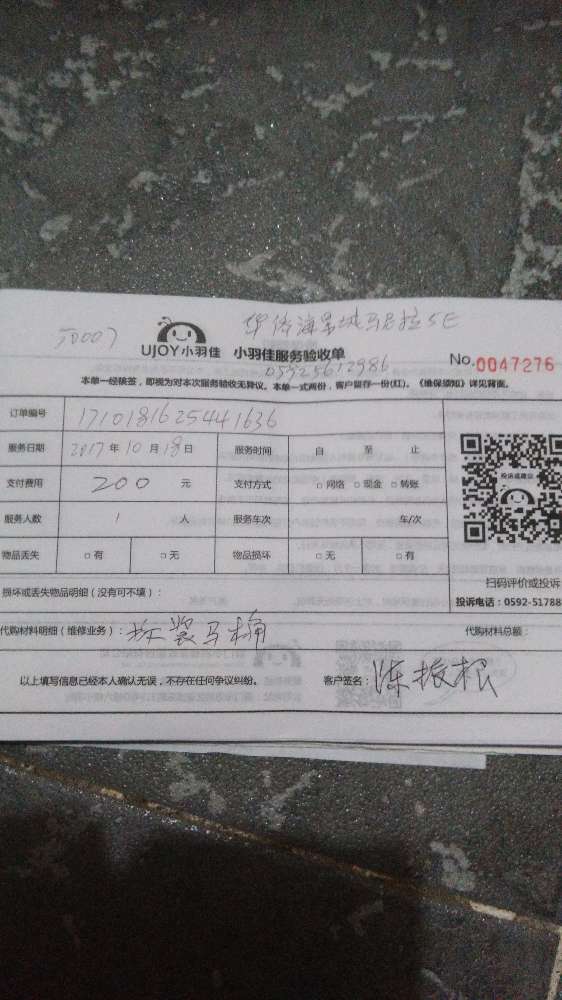 华侨海景城马尼拉5E
UJOY小羽佳 小羽佳服务验收单
05925612986
No.0047276
本单一经接签，即视为对本次服务验收无异议。本单一式两份，客户留存一份(红)。《维保须知》详见背面。
订单编号 1710181625441636
服务日期 2017年10月18日 服务时间 自 至 止
支付费用 200 元 支付方式 □网络 □现金 □转账
投诉或建议
服务人数 1 人 服务车次 车/次
物品丢失 □有 □无 物品损坏 □无 □有
扫码评价或投诉
损坏或丢失物品明细（没有可不填）：
投诉电话：0592-51788
代购材料明细（维修业务）：拆装马桶 代购材料总额：
以上填写信息已经本人确认无误，不存在任何争议纠纷。 客户签名：陈振根